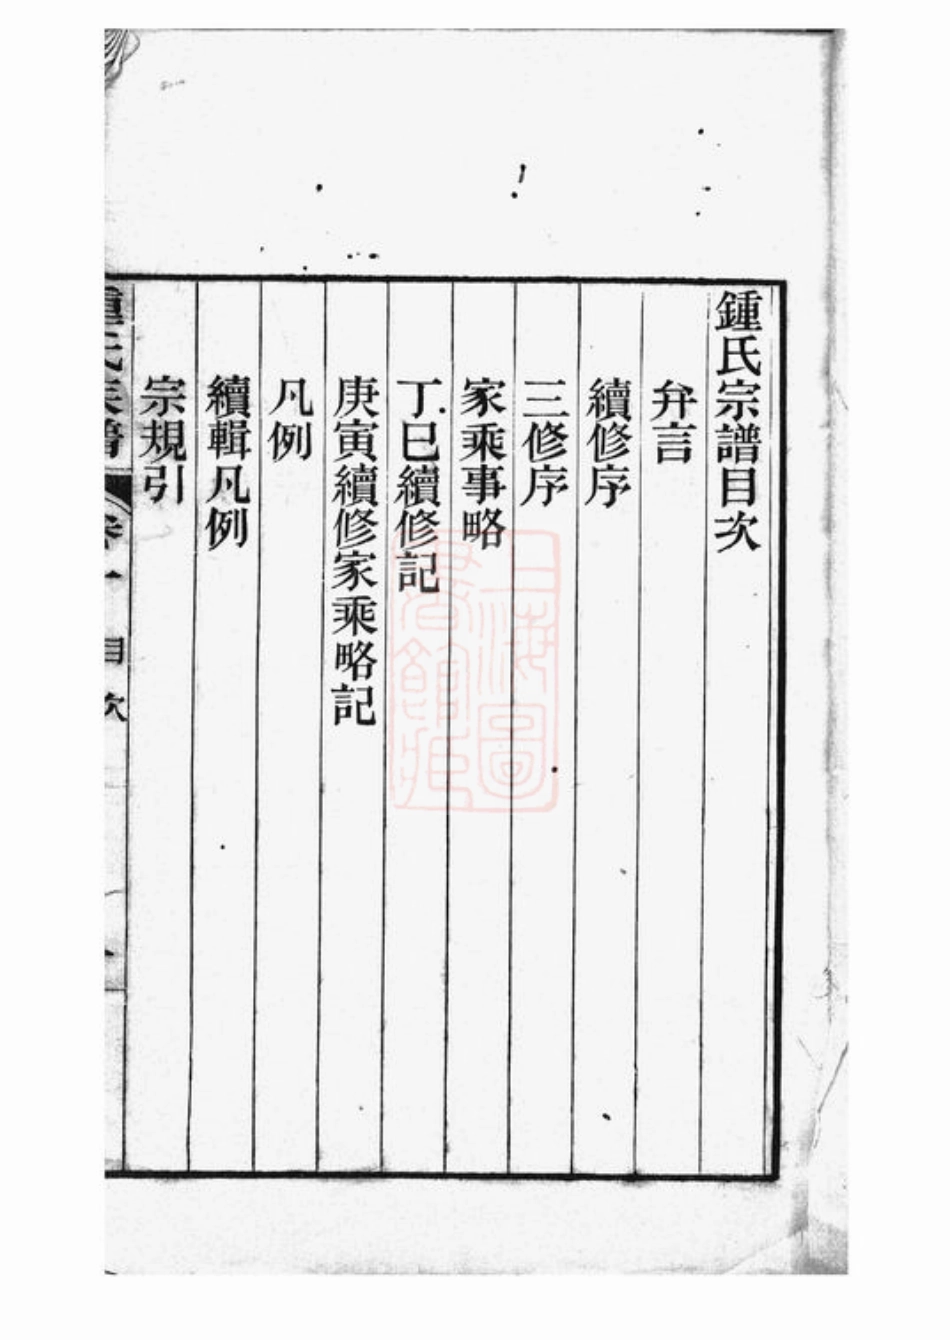 鍾氏宗譜目次
弁言
續修序
三修序
家乘事略
丁巳續修記
庚寅續修家乘略記
凡例
續輯凡例
宗規引
鍾氏宗譜
卷一
目次
上海圖書館藏